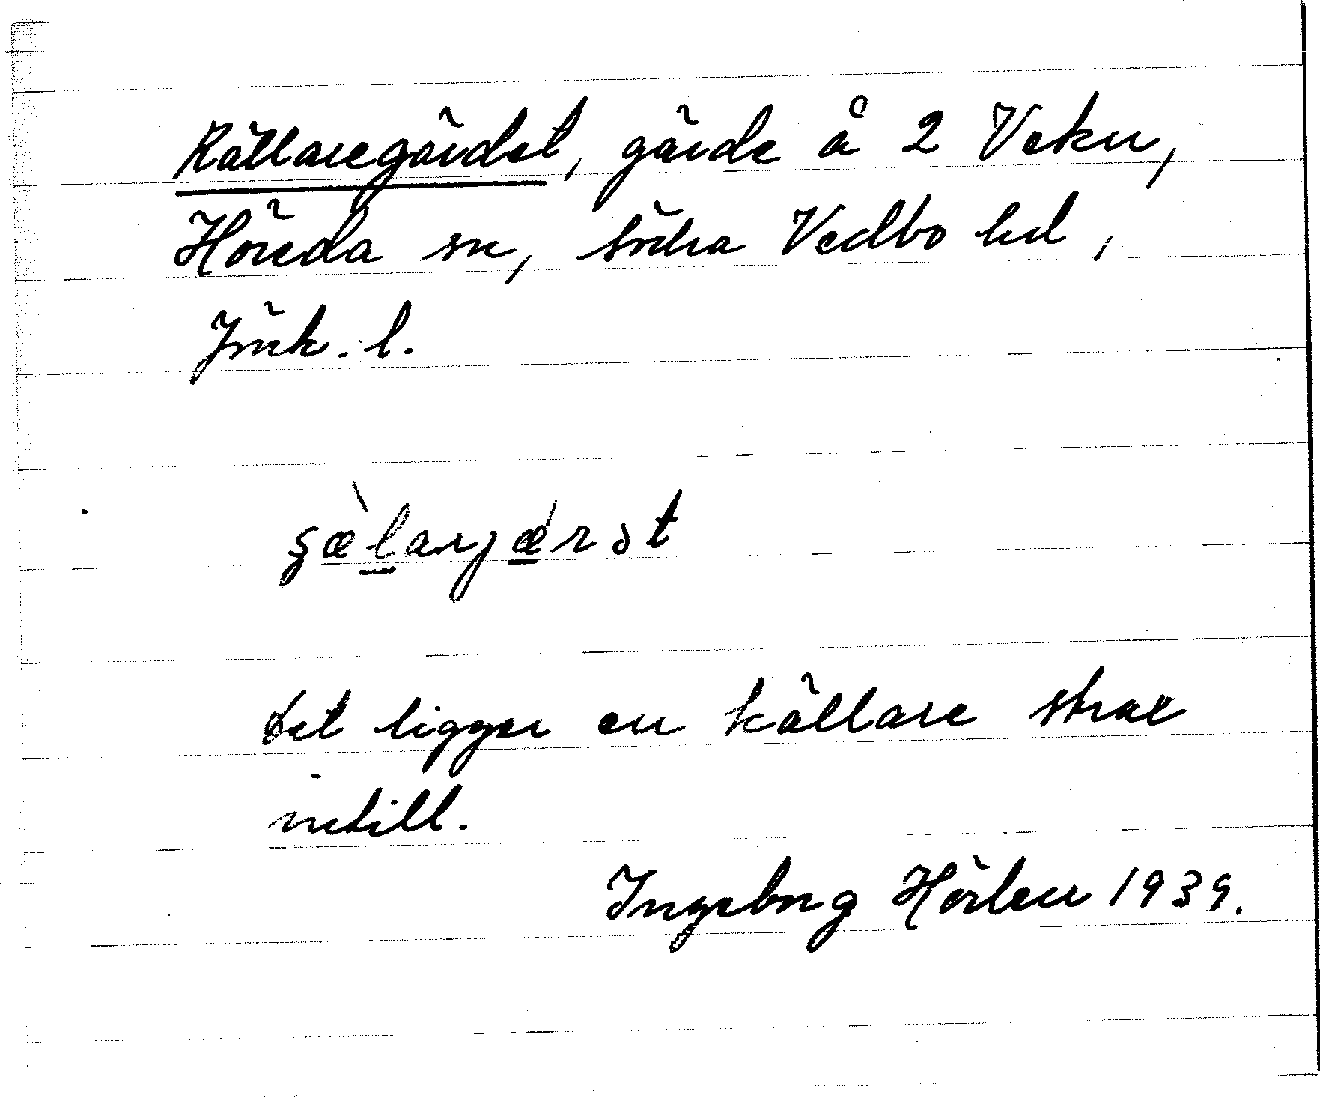 Källaregärdet, gärde å 2 Veku,
Höreda sn, södra Vedbo hd,
Jönk. l.
det ligger en källare strax
intill.
Ingeborg Hörlen 1939.